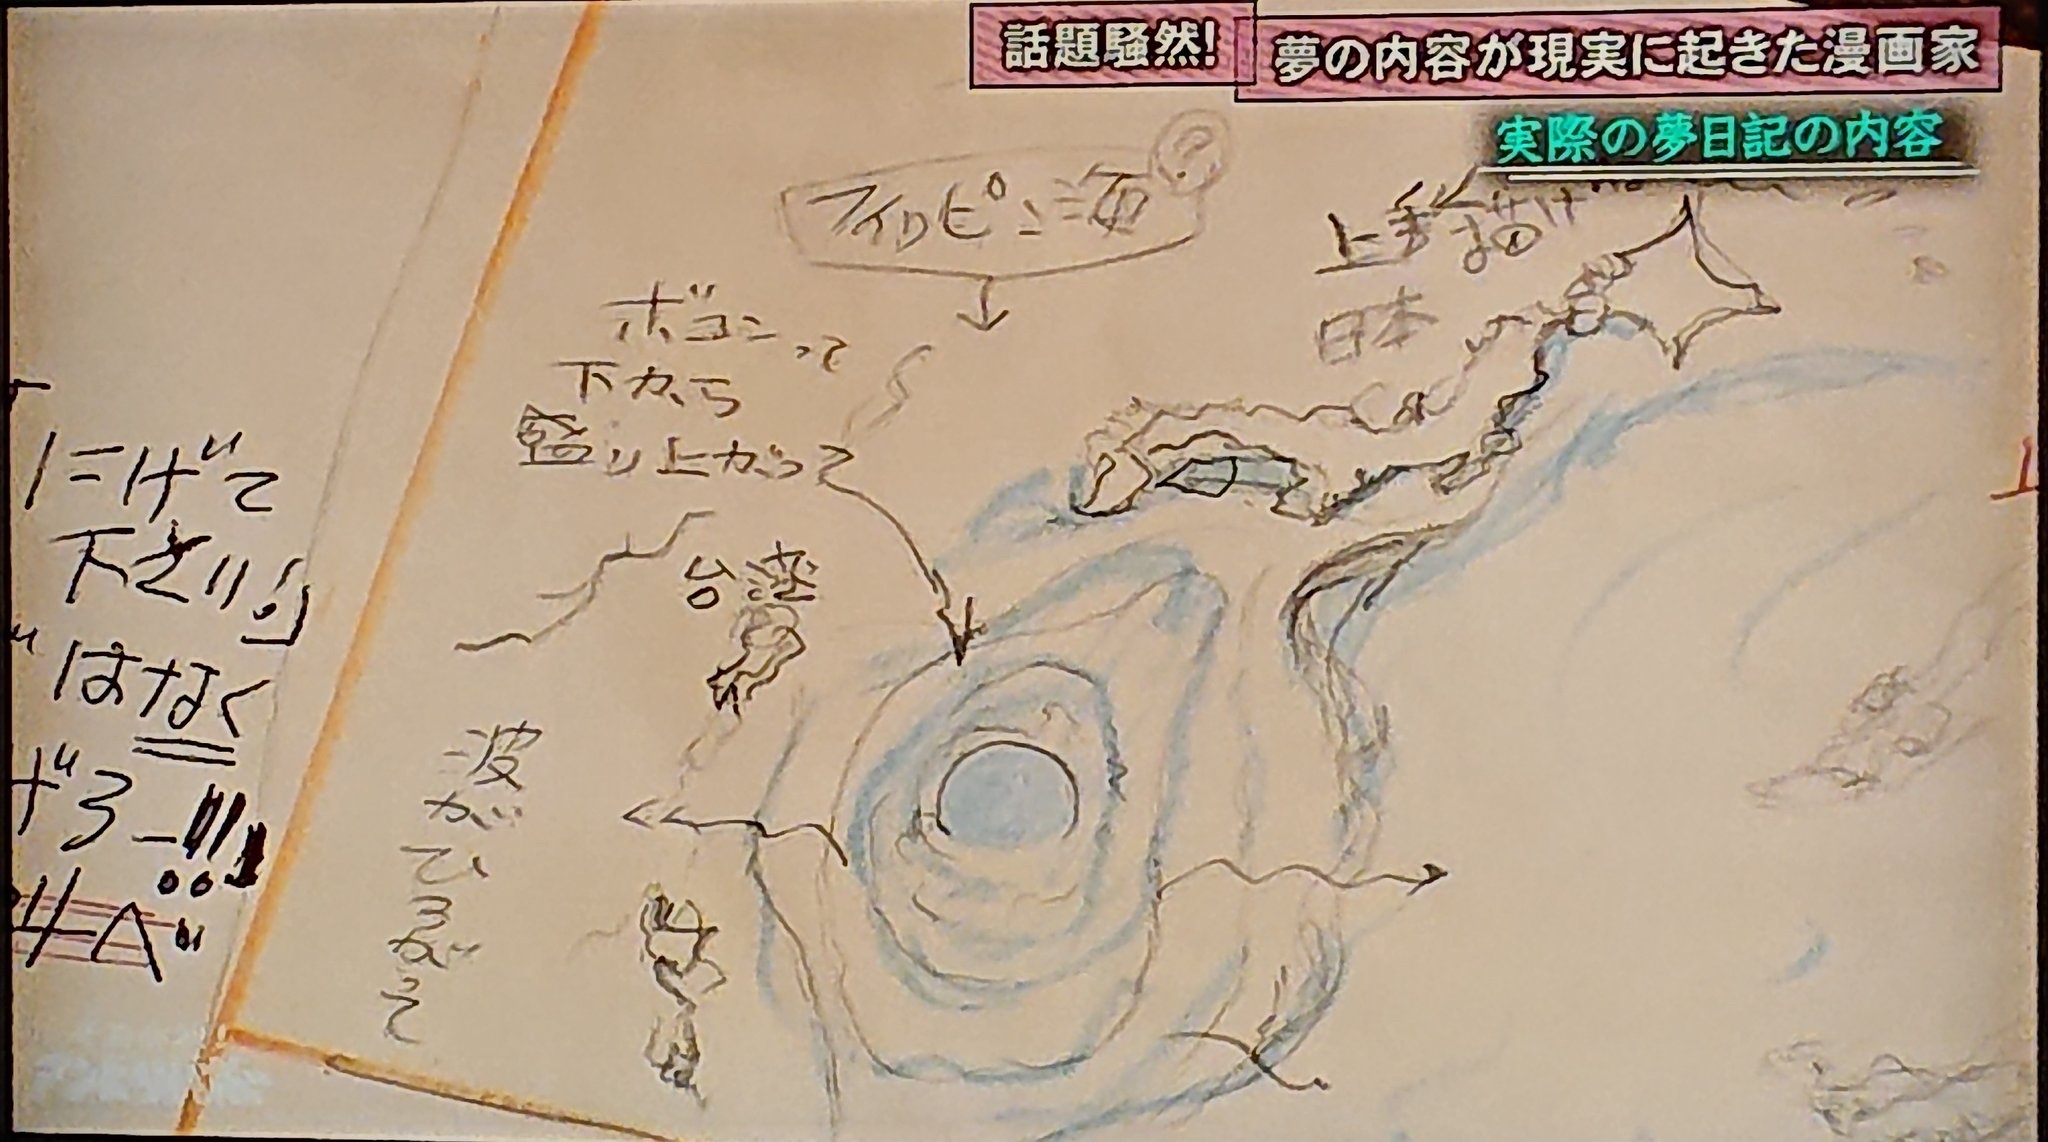 話題騒然！
夢の内容が現実に起きた漫画家
実際の夢日記の内容
フィリピン海
?
日本
ボコンって
下から
盛り上がって
台湾
波
が
ひ
ろ
がって
にげて
下さい」
ではなく
げろー!!!